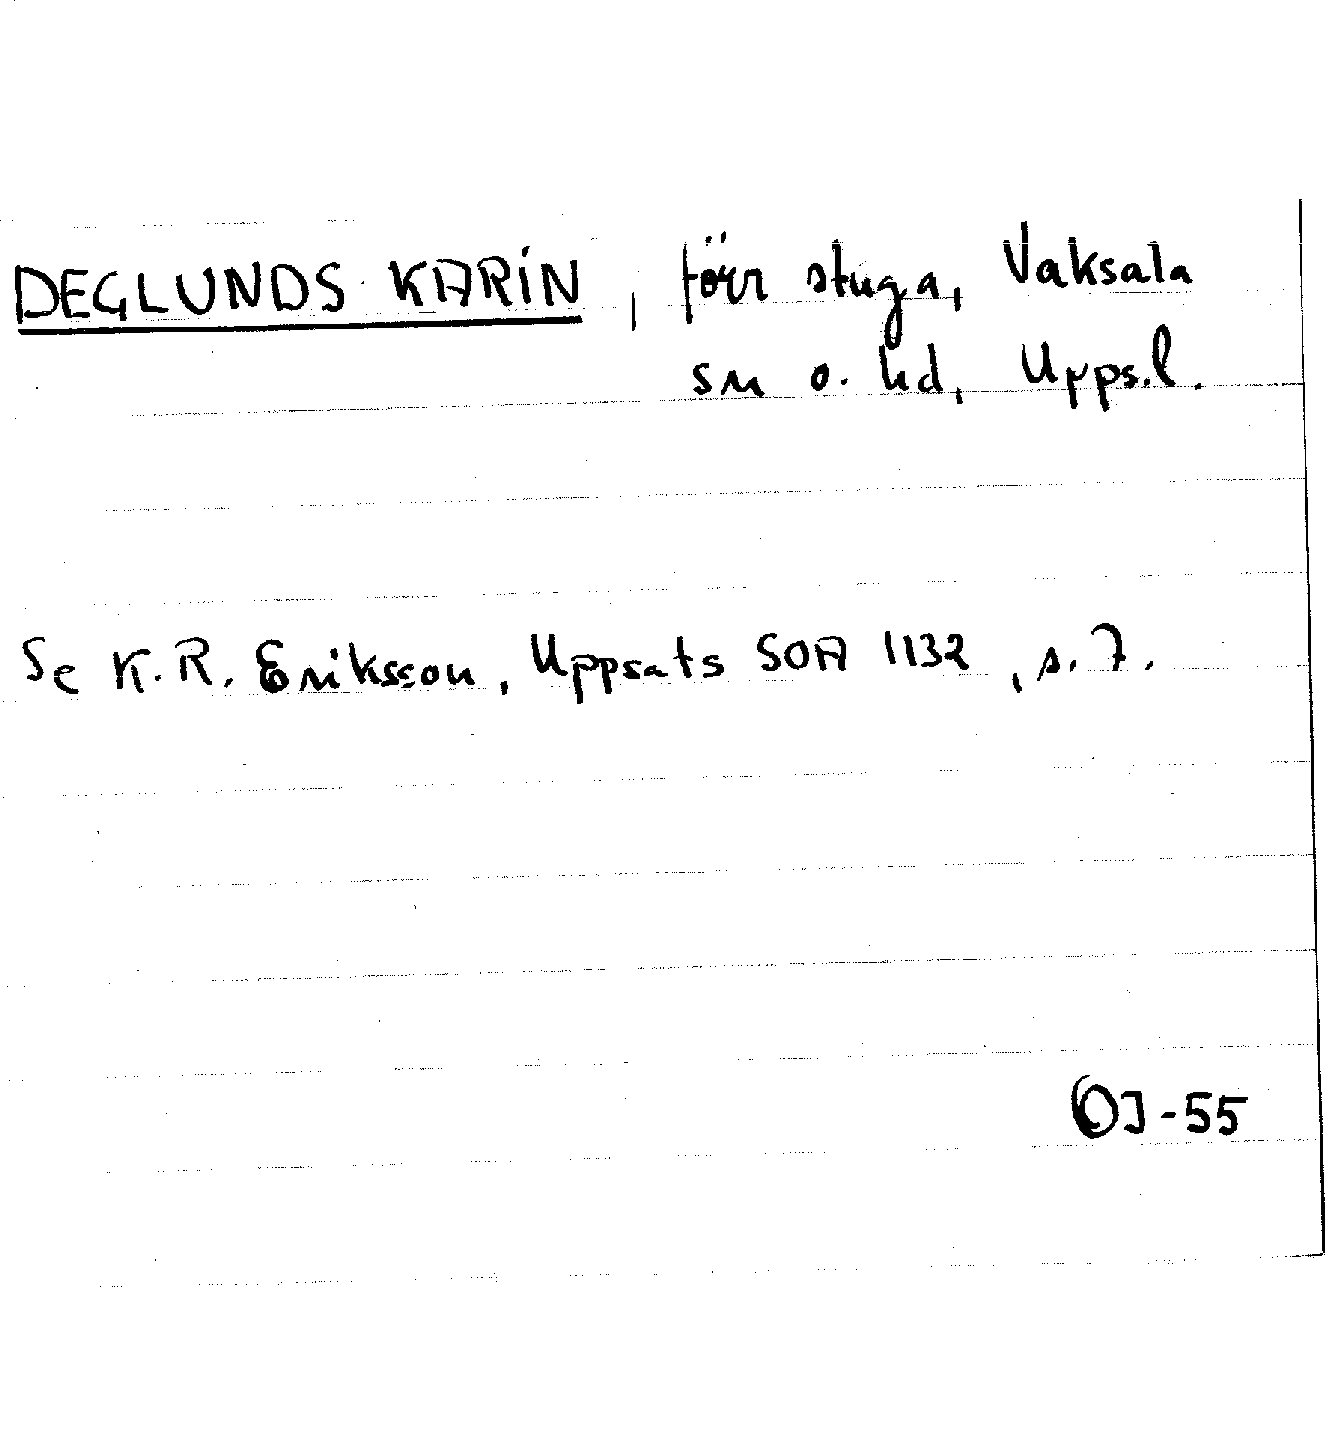 DEGLUNDS KARIN, förr stuga, Vaksala
sn o. hd, Upps.l.
Se K.R. Eriksson, Uppsats SOA 1132, s. 7.
OJ-55